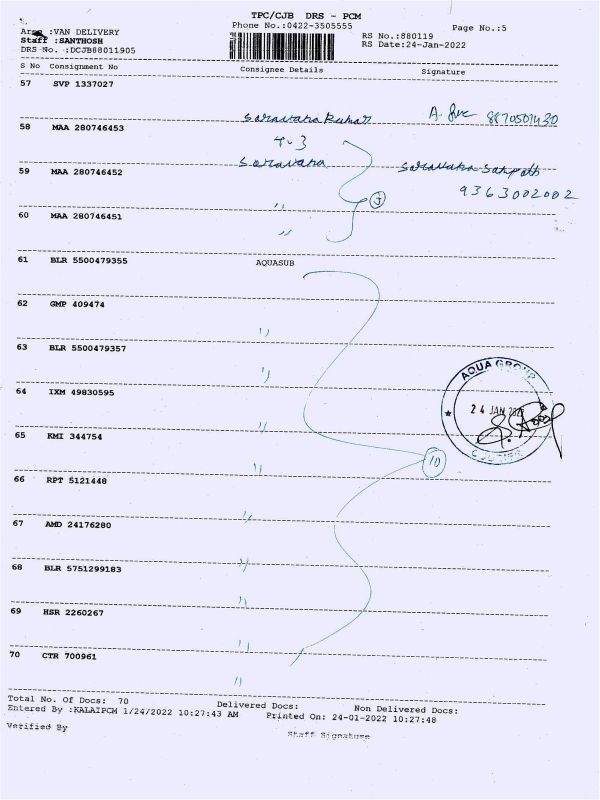 TPC/CJB DRS - PCM
Phone No.:0422-3505555
Page No.:5
Area :VAN DELIVERY
RS No.:880119
Staff :SANTHOSH
RS Date:24-Jan-2022
DRS No. :DCJB88011905
S No Consignment No Consignee Details Signature
57 SVP 1337027
Saravana Kumar 8870507430
58 MAA 280746453
4-3
Saravana
59 MAA 280746452
9363002002
"
60 MAA 280746451
"
61 BLR 5500479355 AQUASUB
62 GMP 409474
"
63 BLR 5500479357
"
64 IXM 49830595
AQUA GROUP
24 JAN 2022
"
65 KMI 344754
10
"
66 RPT 5121448
"
67 AMD 24176280
"
68 BLR 5751299183
"
69 HSR 2260267
"
70 CTR 700961
"
Total No. Of Docs: 70 Delivered Docs: Non Delivered Docs:
Entered By :KALAIPCM 1/24/2022 10:27:43 AM Printed On: 24-01-2022 10:27:48
Verified By Staff Signature